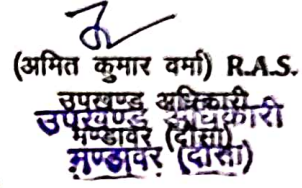 (अमित कुमार वर्मा) R.A.S.
उपखण्ड अधिकारी
उपखण्ड अधिकारी
मण्डावर (दौसा)
मण्डावर (दौसा)